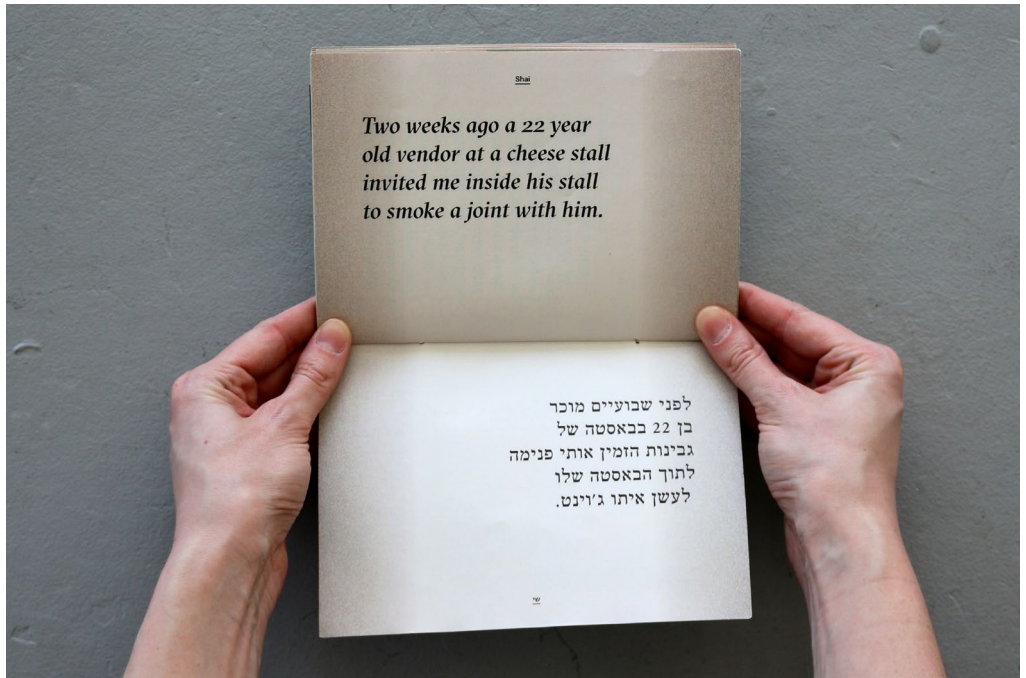 Shai
Two weeks ago a 22 year
old vendor at a cheese stall
invited me inside his stall
to smoke a joint with him.
לפני שבועיים מוכר
בן 22 בבאסטה של
גבינות הזמין אותי פנימה
לתוך הבאסטה שלו
לעשן איתו ג׳וינט.
שי